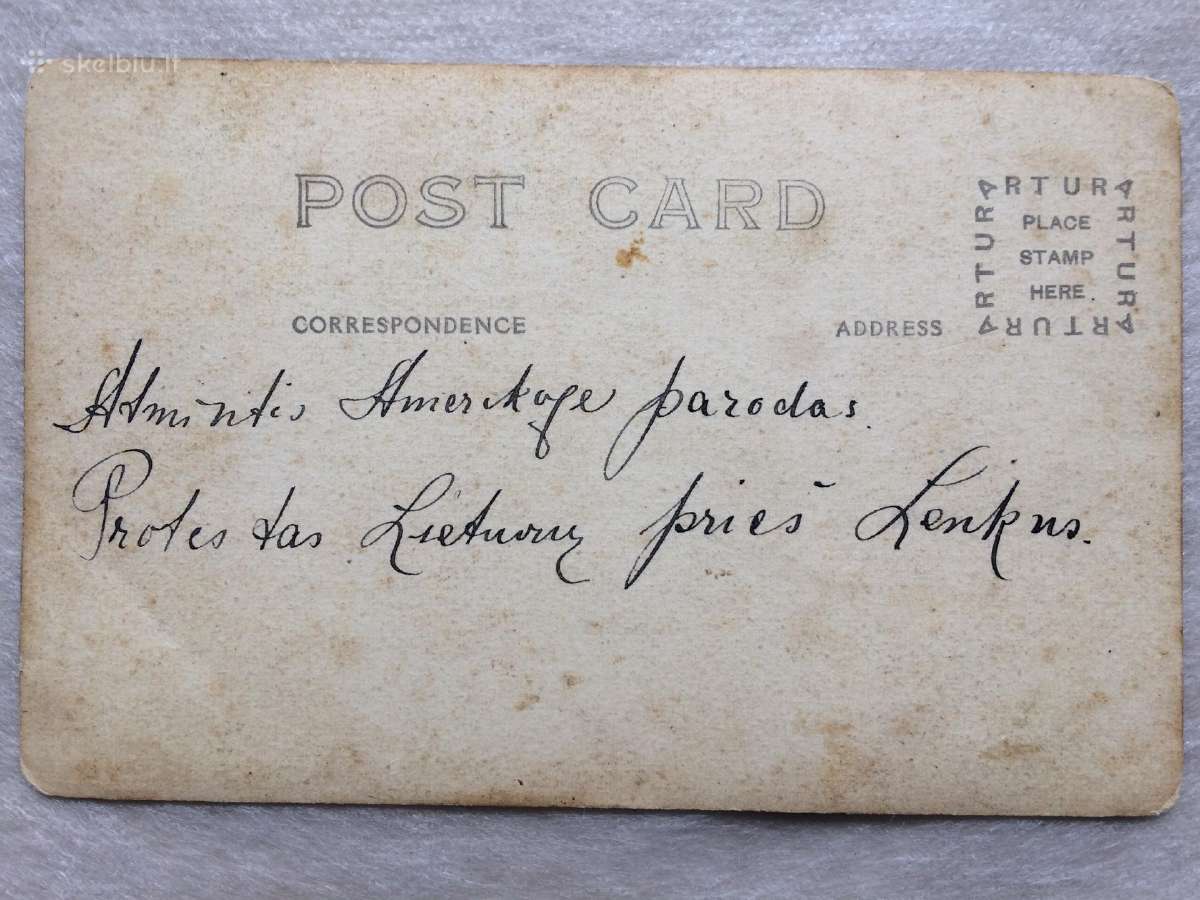 skelbiu.lt
POST CARD
ARTURA
ARTURA
ARTURA
ARTURA
PLACE
STAMP
HERE
CORRESPONDENCE
ADDRESS
Atmintis Amerikoje parodas.
Protestas Lietuvių prieš Lenkus.